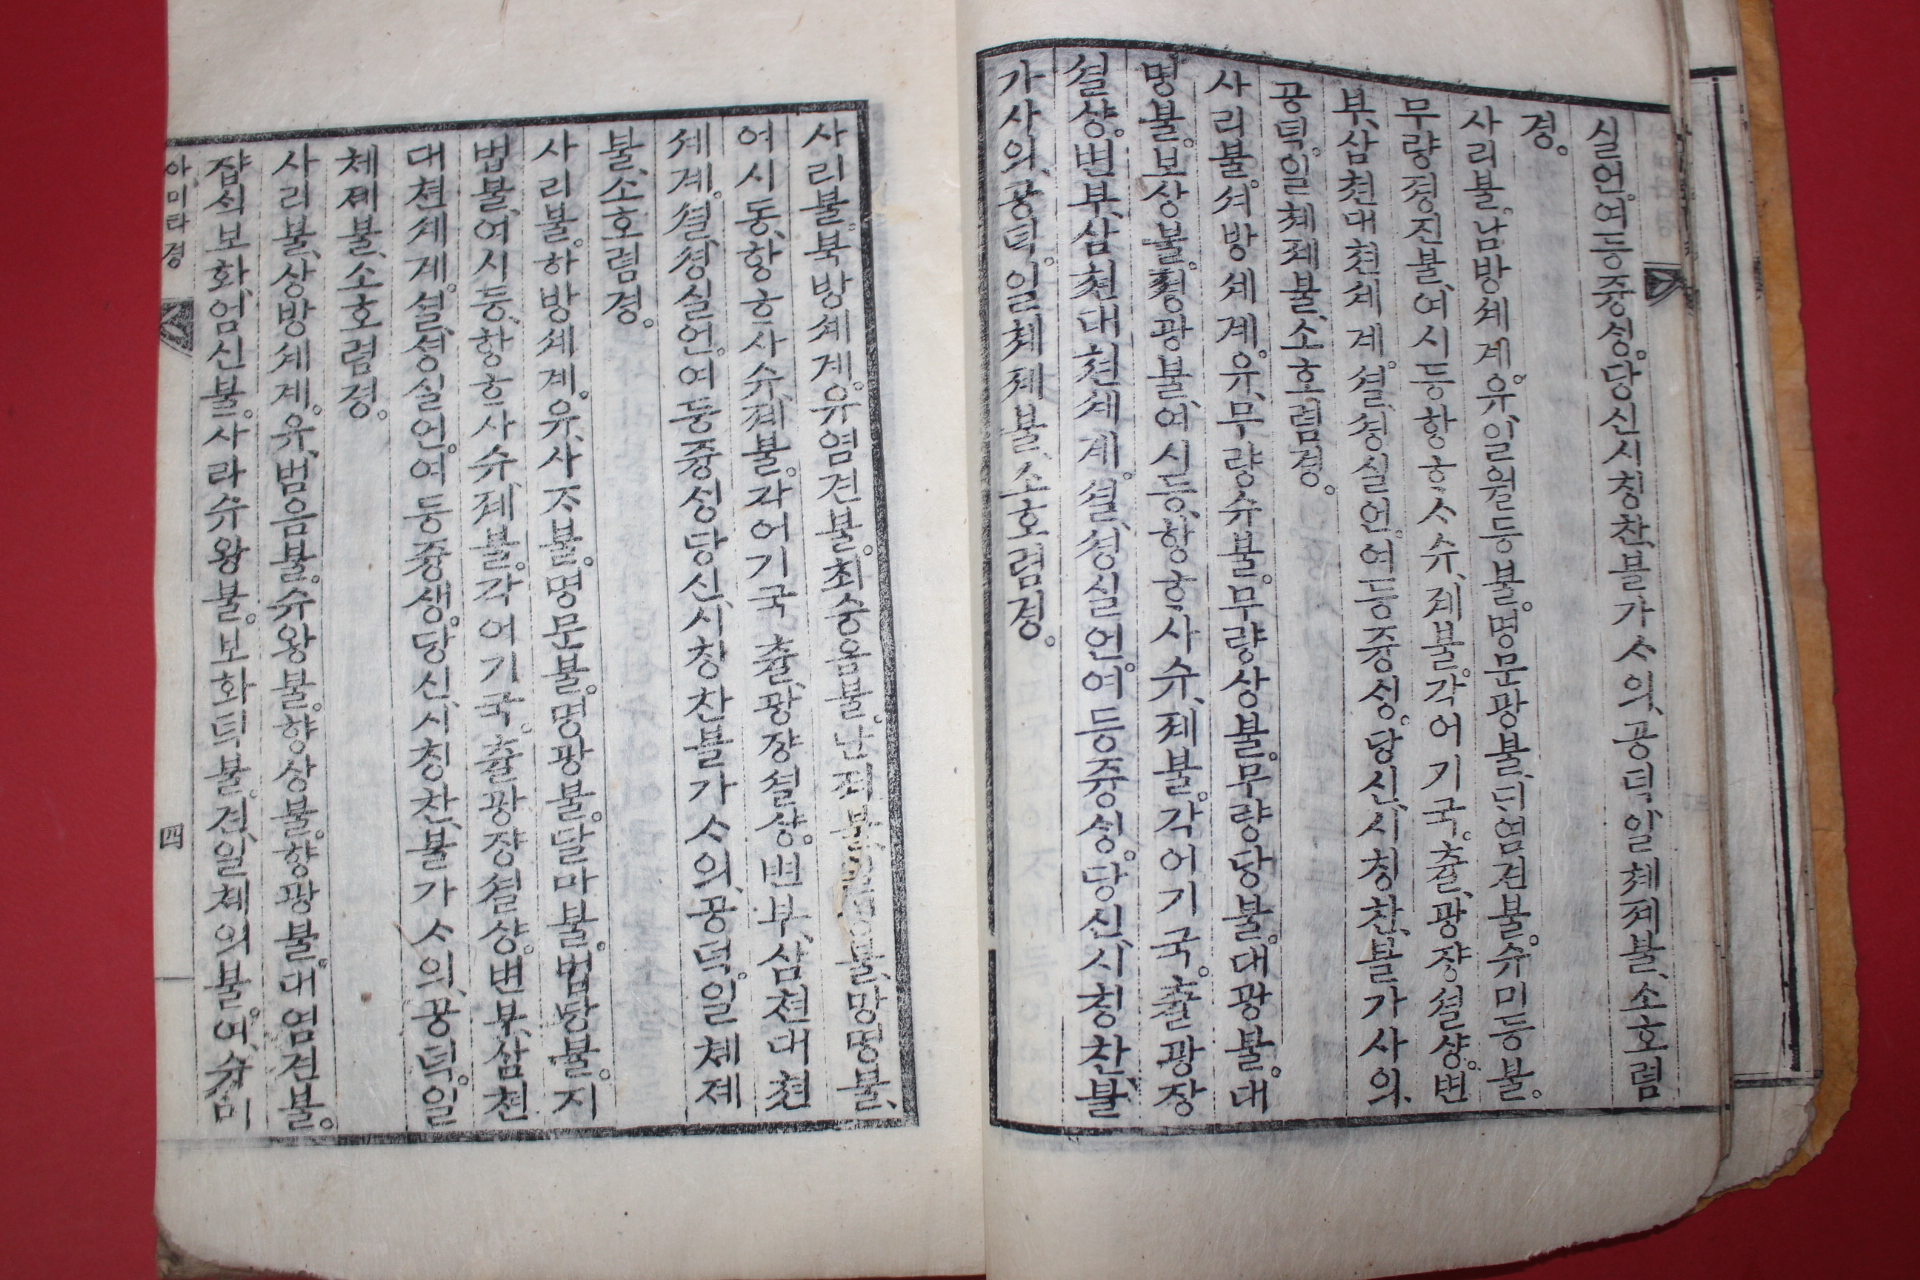 실언。여등즁ᄉᆡᆼ。당신시칭찬、불가ᄉᆞ의、공덕、일쳬졔불、소호렴
경。
사리불。남방셰계。유、일월등불。명문광불、ᄃᆡ염견불。슈미등불。
무량졍진불、여시등항ᄒᆞᄉᆞ슈、졔불。각어기국。츌、광쟝셜샹。변
부、삼쳔대쳔셰계。셜、셩실언。여등즁ᄉᆡᆼ。당신、시칭찬、불가사의、
공덕。일쳬졔불、소호렴경。
사리불。셔방셰계。유、무량슈불。무량샹불。무량당불。대광불。대
명불。보상불。졍광불、여시등、항ᄒᆞ사슈、졔불。각어기국。츌광장
셜샹。변부、삼쳔대쳔세계。셜、셩실언。여등즁ᄉᆡᆼ。당신、시칭찬、불
가사의、공덕。일쳬졔불、소호렴경。
사리불。북방셰계。유염견불。최승음불、난져불、망명불、
여시등、항ᄒᆞ사슈、졔불。각어기국、츌、광쟝셜샹。변부、삼쳔대쳔
셰계。셜、셩실언。여등즁ᄉᆡᆼ당신、시칭찬불가ᄉᆞ의、공덕。일쳬졔
불、소호렴경。
사리불。하방셰계。유、사ᄌᆞ불。명문불。명광불。달마불。법당불。지
법불、여시등、항ᄒᆞ사슈、졔불。각어기국。츌광쟝셜샹。변부、삼쳔
대쳔셰계。셜、셩실언。여등즁생。당신、시칭찬、불가ᄉᆞ의、공덕。일
쳬졔불、소호렴경。
사리불、상방셰계。유、범음불。슈왕불。향상불。향광불。대염견불。
쟙ᄉᆡᆨ보화、엄신불。사라슈왕불。보화덕불。견、일쳬의불。여、슈미
아미타경
四